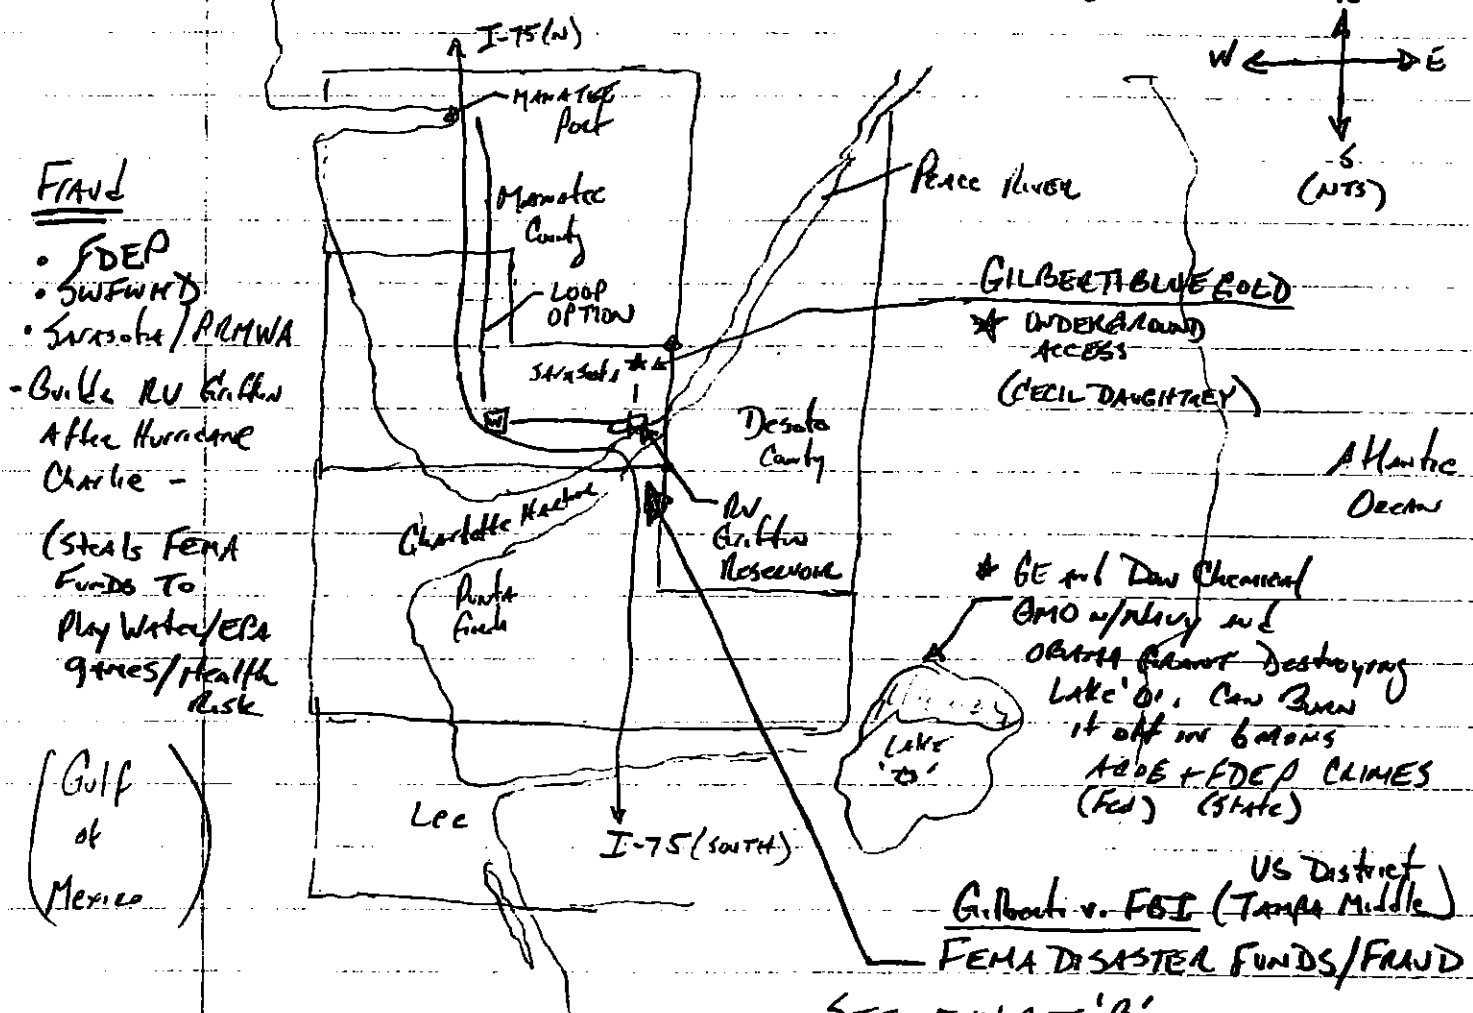 I-75(N)
W
E
S
(NTS)
MANATEE
Port
Manatee
County
LOOP
OPTION
Peace River
Fraud
• FDEP
• SWFWMD
• Sarasota/PRMWA
- Builds RV Griffin
After Hurricane
Charlie -
(Steals FEMA
Funds To
Play Water/EPA
games/Health
Risk
GILBERTIBLUEGOLD
* UNDERGROUND
ACCESS
(CECIL DAUGHTREY)
Sarasota
W
Desoto
County
Atlantic
Ocean
Charlotte Harbor
RV
Griffin
Reservoir
Punta
Gorda
* GE and Dow Chemical
GMO w/Navy and
OBAMA GRANT Destroying
Lake 'O'. CAN BURN
it off in 6 mons
ACOE + FDEP CRIMES
(Fed) (State)
LAKE
'O'
(Gulf
of
Mexico)
Lee
I-75(SOUTH)
US District
Gilberti v. FBI (TAMPA Middle)
FEMA DISASTER FUNDS/FRAUD